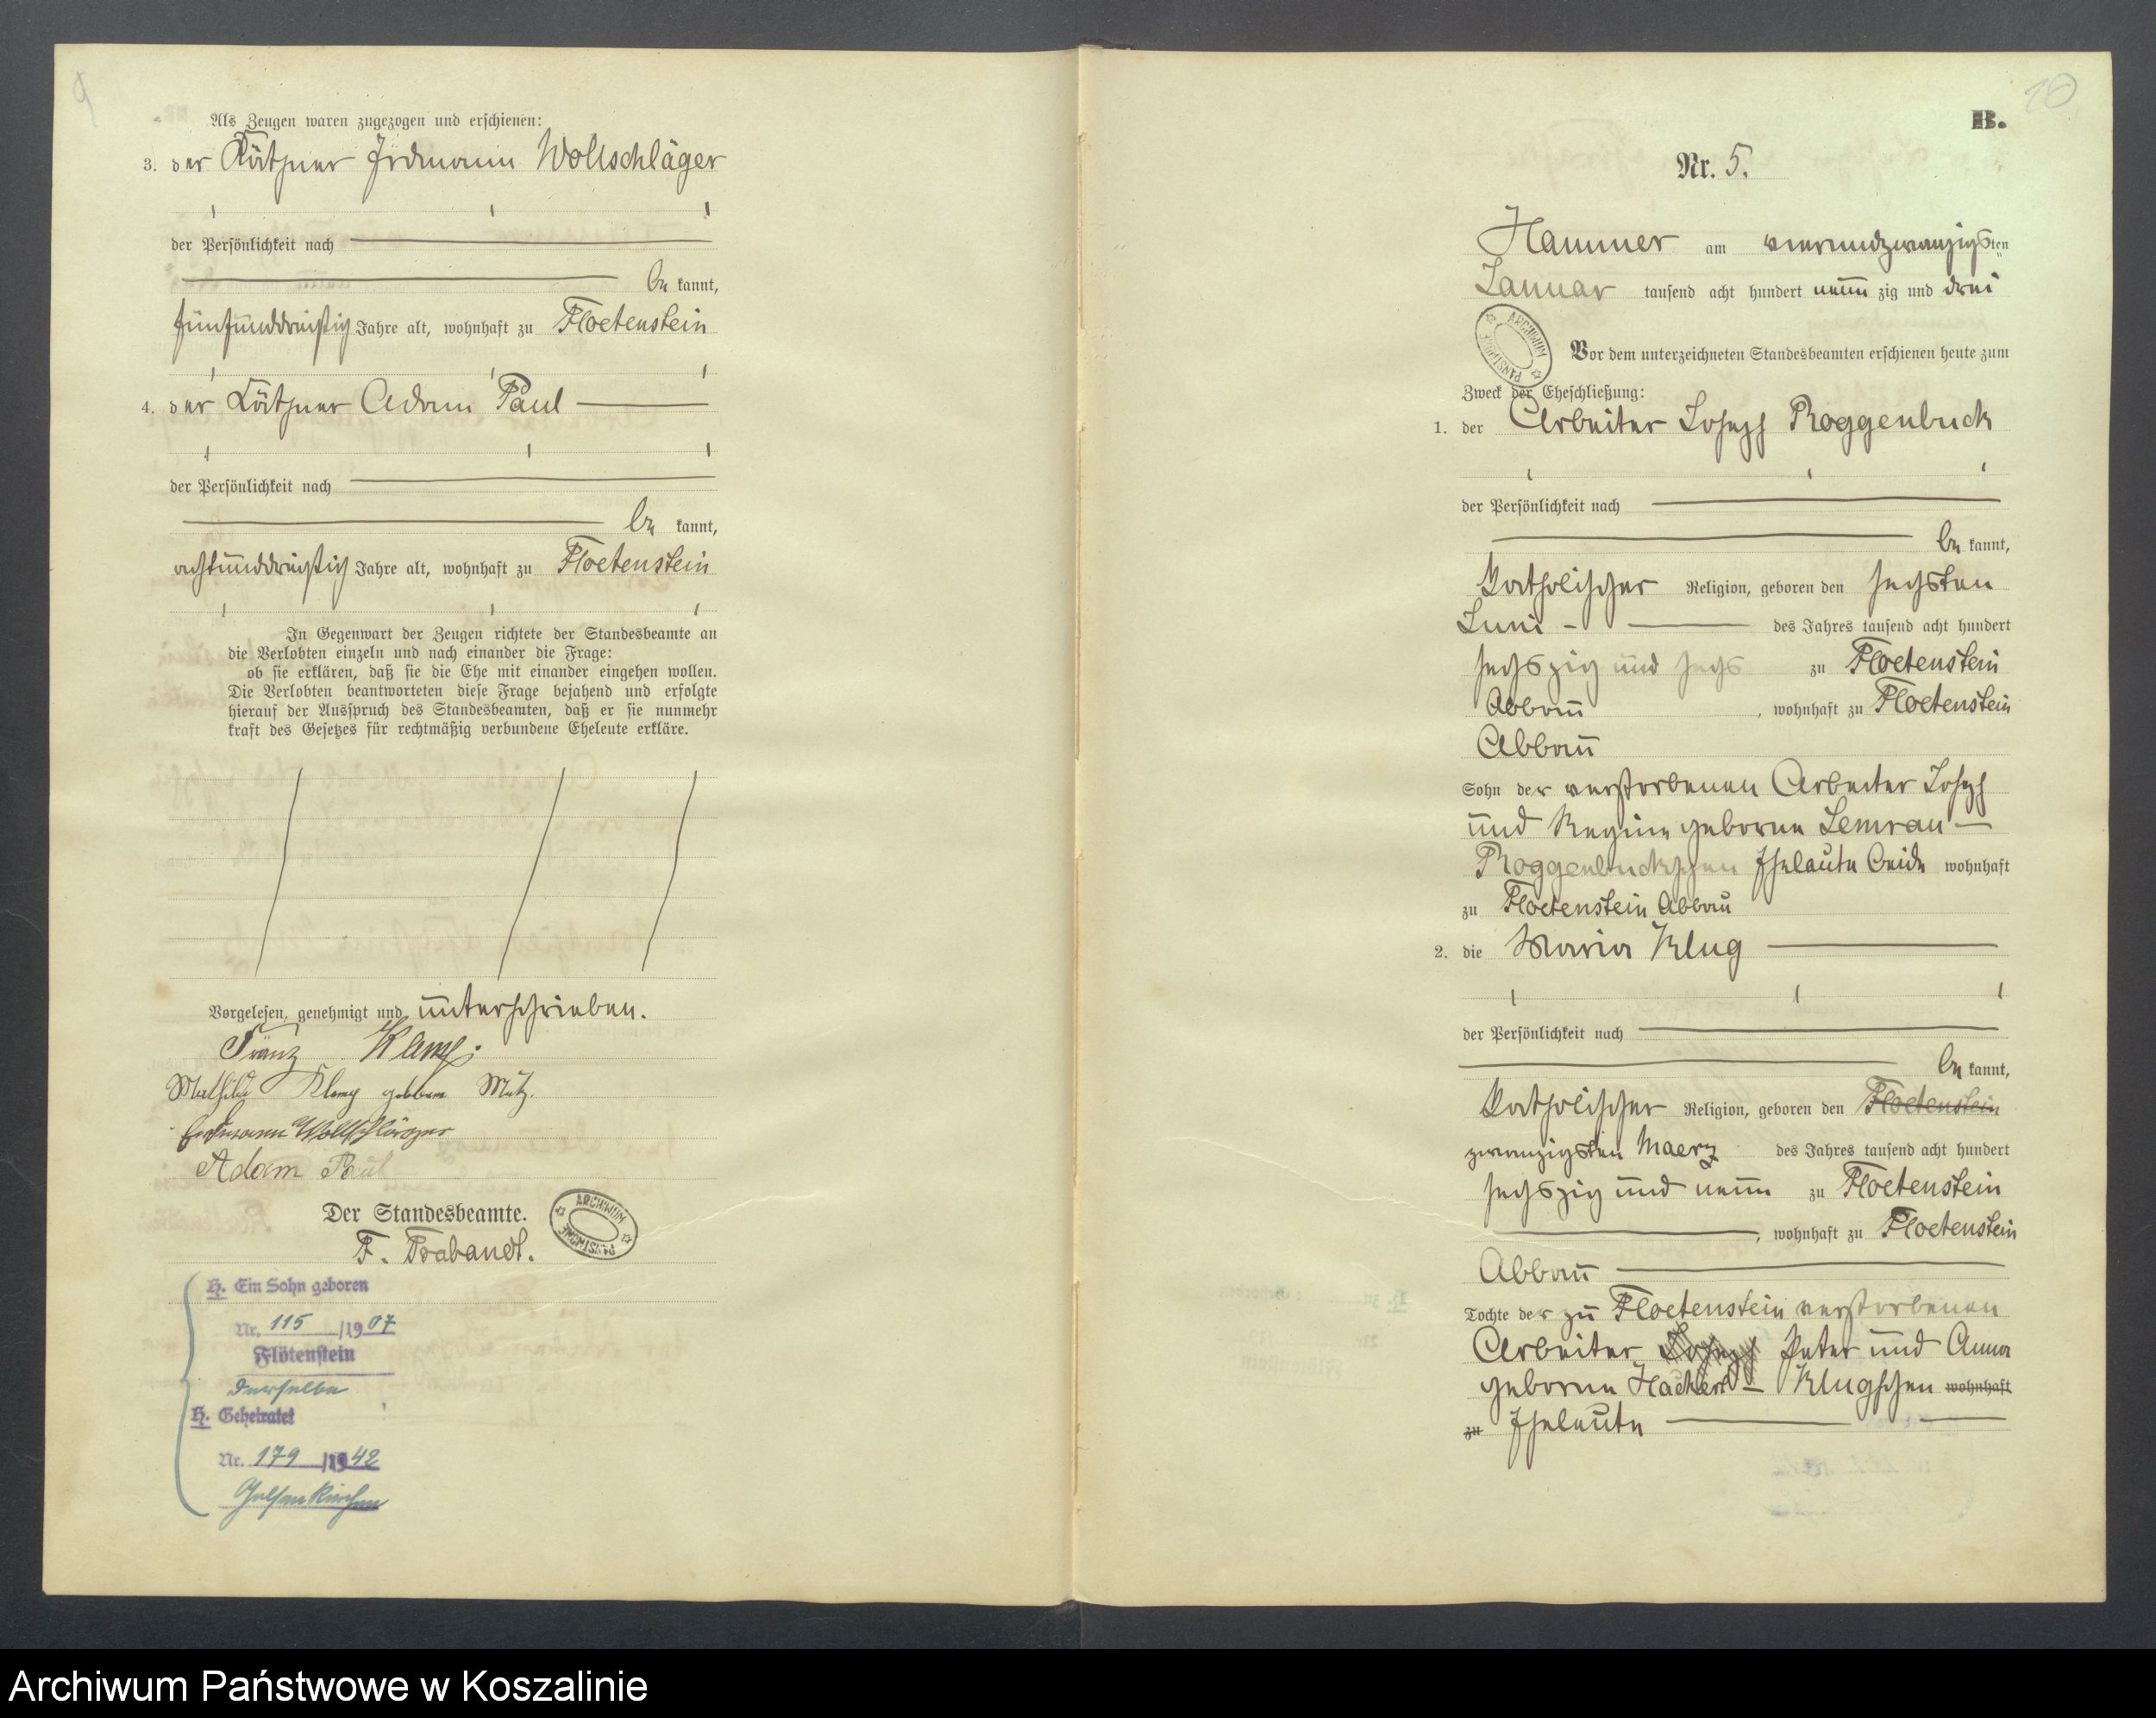 9
Als Zeugen waren zugezogen und erschienen:
3. der Käthner Erdmann Wollschläger
der Persönlichkeit nach
be kannt,
fünfunddreißig Jahre alt, wohnhaft zu Floetenstein
4. der Käthner Adam Paul
der Persönlichkeit nach
be kannt,
achtunddreißig Jahre alt, wohnhaft zu Floetenstein
In Gegenwart der Zeugen richtete der Standesbeamte an
die Verlobten einzeln und nach einander die Frage:
ob sie erklären, daß sie die Ehe mit einander eingehen wollen.
Die Verlobten beantworteten diese Frage bejahend und erfolgte
hierauf der Ausspruch des Standesbeamten, daß er sie nunmehr
kraft des Gesetzes für rechtmäßig verbundene Eheleute erkläre.
Vorgelesen, genehmigt und unterschrieben.
Franz
Mathilde
Erdmann Wollschläger
Adam Paul
Der Standesbeamte.
F. Trabandt.
ARCHIWUM PAŃSTWOWE
H. Ein Sohn geboren
Nr. 115 /1907
Flötenstein
Derselbe
H. Geheiratet
Nr. 179 /1942
Gelsenkirchen
10
B.
Nr. 5.
Hammer am vierundzwanzigsten
Januar tausend acht hundert neun zig und drei
ARCHIWUM PAŃSTWOWE
Vor dem unterzeichneten Standesbeamten erschienen heute zum
Zweck der Eheschließung:
1. der Arbeiter Joseph Roggenbuck
der Persönlichkeit nach
be kannt,
katholischer Religion, geboren den sechsten
Juni - des Jahres tausend acht hundert
sechszig und sechs zu Floetenstein
Abbau, wohnhaft zu Floetenstein
Abbau
Sohn der verstorbenen Arbeiter Joseph
und Regine geborne Lemrau -
Roggenbuckschen Eheleute beide wohnhaft
zu Floetenstein Abbau
2. die Maria Klug
der Persönlichkeit nach
be kannt,
katholischer Religion, geboren den Floetenstein
zwanzigsten Maerz des Jahres tausend acht hundert
sechszig und neun zu Floetenstein
, wohnhaft zu Floetenstein
Abbau
Tochte der zu Floetenstein verstorbenen
Arbeiter Joseph Peter und Anna
geborne Hackert - Klugschen wohnhaft
zu Eheleute
Archiwum Państwowe w Koszalinie